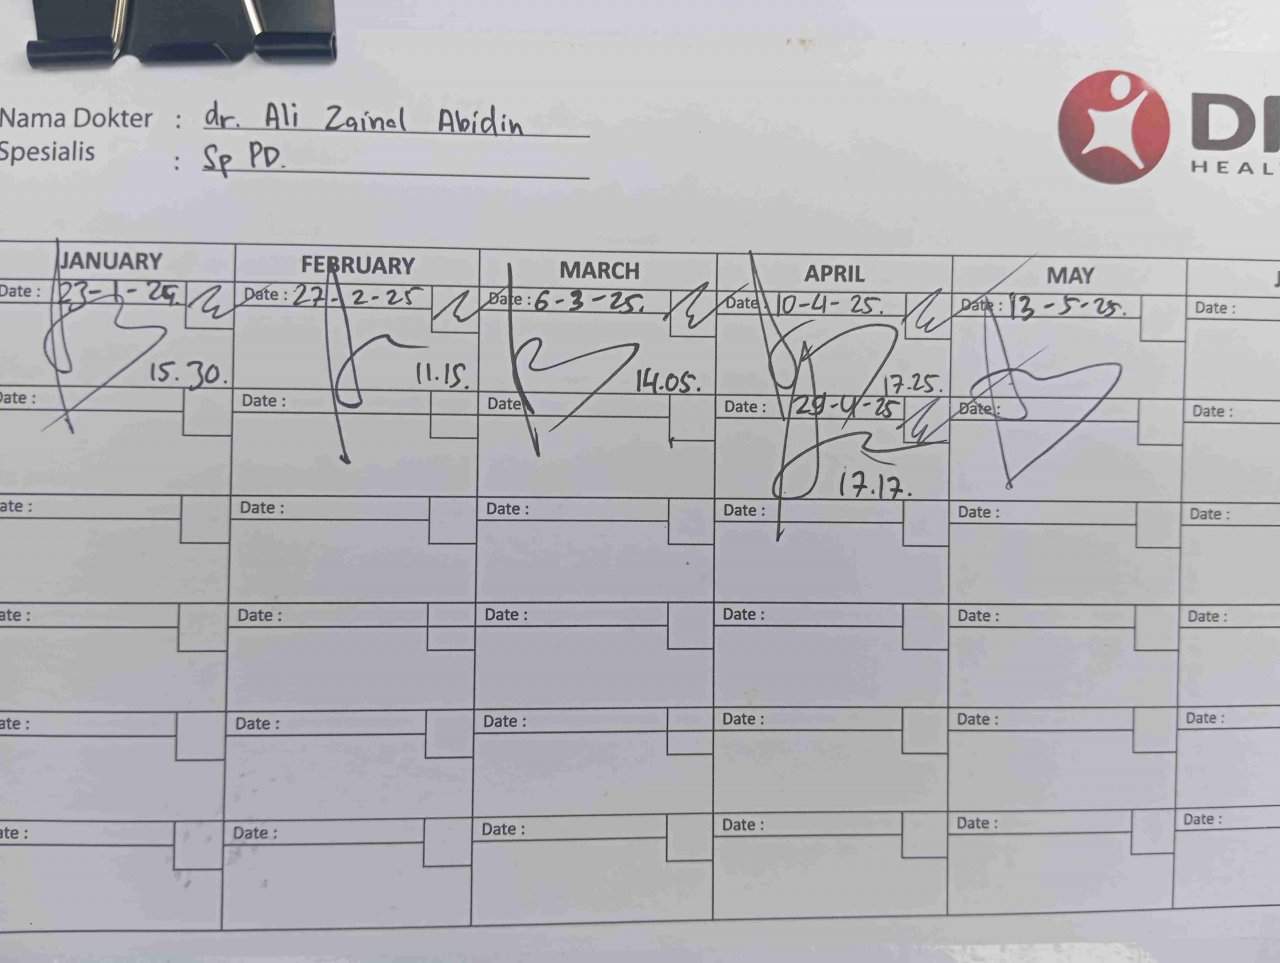 Nama Dokter : dr. Ali Zainal Abidin
Spesialis : Sp PD.
HEAL
JANUARY FEBRUARY MARCH APRIL MAY
Date : 23-1-25 Date : 27-2-25 Date : 6-3-25. Date : 10-4-25. Date : 13-5-25. Date :
15.30. 11.15. 14.05. 17.25.
Date : Date : Date Date : 29-4-25 Date : Date :
17.17.
ate : Date : Date : Date : Date : Date :
ate : Date : Date : Date : Date : Date :
ate : Date : Date : Date : Date : Date :
ate : Date : Date : Date : Date : Date :